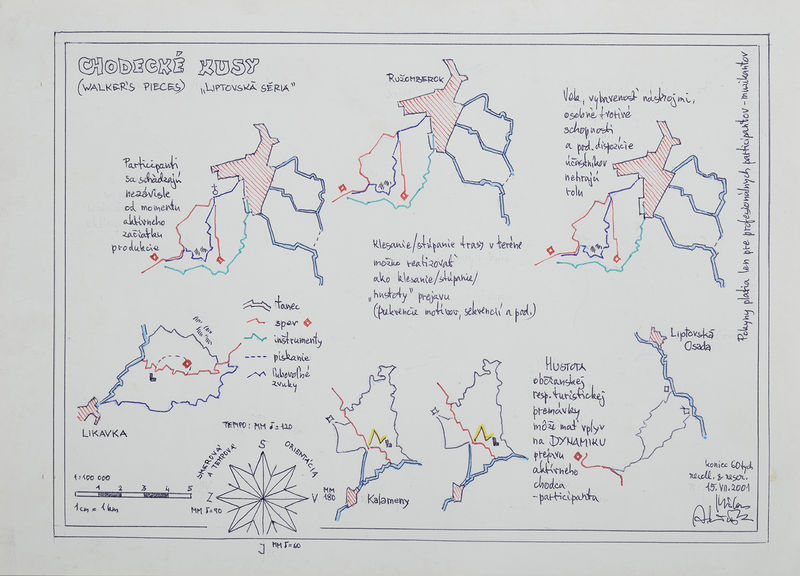 CHODECKÉ KUSY
(WALKER'S PIECES) „LIPTOVSKÁ SÉRIA"
RUŽOMBEROK
Participanti
sa schádzajú
nezávisle
od momentu
aktívneho
začiatku
produkcie
Vek, vybavenosť nástrojmi,
osobné tvorivé
schopnosti
a pod. dispozície
účastníkov
nehrajú
rolu
Pokyny platia len pre profesionálnych participantov - muzikantov
Klesanie/stúpanie trasy v teréne
možno realizovať
ako klesanie/stúpanie/
„hustoty" prejavu
(frekvencie motívov, sekvencií a pod.)
tanec
spev
inštrumenty
pískanie
ľubovoľné
zvuky
LIKAVKA
Kalameny
Liptovská
Osada
HUSTOTA
občianskej
resp. turistickej
premávky
môže mať vplyv
na DYNAMIKU
prejavu
aktívneho
chodca
-participanta
1:100 000
1 2 3 4 5
1cm = 1km
TEMPO: MM =120
SMEROVÁ
A TEMPOVÁ
ORIENTÁCIA
S
Z
V
J
MM =90
MM
180
MM =60
koniec 60tych
15. VII. 2001